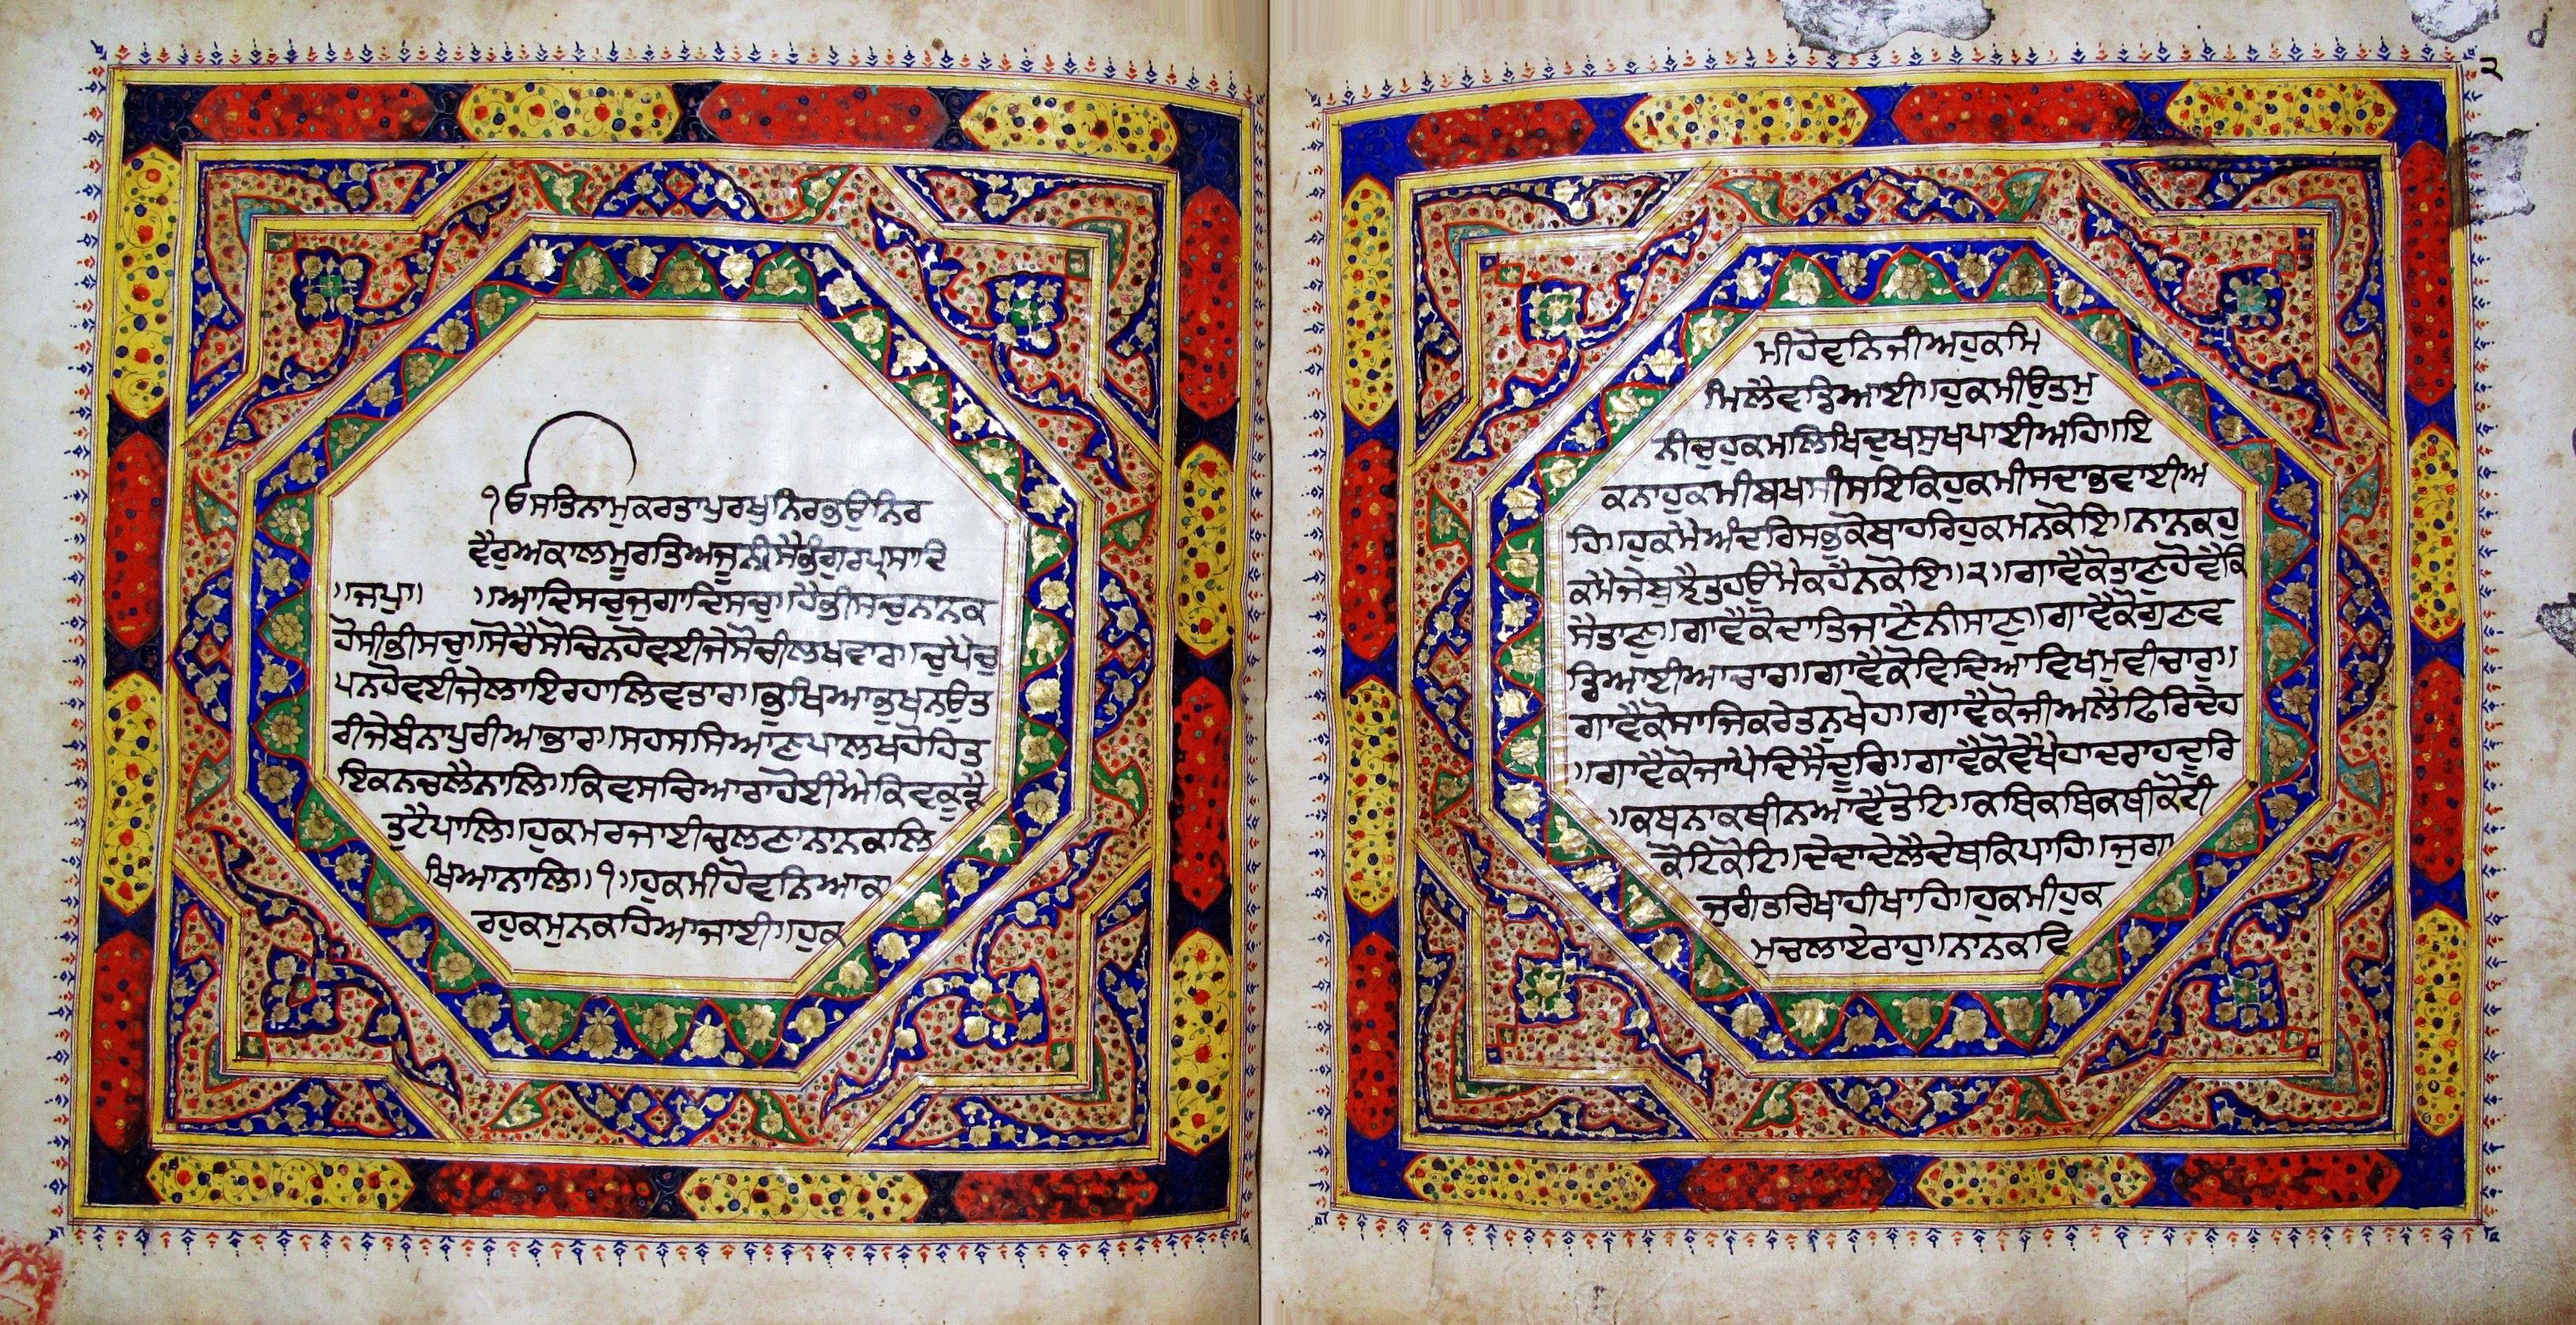 ੧ਓਸਤਿਨਾਮੁਕਰਤਾਪੁਰਖੁਨਿਰਭਉਨਿਰ
ਵੈਰੁਅਕਾਲਮੂਰਤਿਅਜੂਨੀਸੈਭੰਗੁਰਪ੍ਰਸਾਦਿ
॥ਜਪੁ॥ ॥ਆਦਿਸਚੁਜੁਗਾਦਿਸਚੁ॥ਹੈਭੀਸਚੁਨਾਨਕ
ਹੋਸੀਭੀਸਚੁ॥ਸੋਚੈਸੋਚਿਨਹੋਵਈਜੇਸੋਚੀਲਖਵਾਰ॥ਚੁਪੇਚੁ
ਪਨਹੋਵਈਜੇਲਾਇਰਹਾਲਿਵਤਾਰ॥ਭੁਖਿਆਭੁਖਨਉਤ
ਰੀਜੇਬੰਨਾਪੁਰੀਆਭਾਰ॥ਸਹਸਸਿਆਣਪਾਲਖਹੋਹਿਤ
ਇਕਨਚਲੈਨਾਲਿ॥ਕਿਵਸਚਿਆਰਾਹੋਈਐਕਿਵਕੂੜੈ
ਤੁਟੈਪਾਲਿ॥ਹੁਕਮਰਜਾਈਚਲਣਾਨਾਨਕਲਿ
ਖਿਆਨਾਲਿ॥੧॥ਹੁਕਮੀਹੋਵਨਿਆਕਾ
ਰਹੁਕਮੁਨਕਹਿਆਜਾਈ॥ਹੁਕ
੨
ਮੀਹੋਵਨਿਜੀਅਹੁਕਮਿ
ਮਿਲੈਵਡਿਆਈ॥ਹੁਕਮੀਉਤਮੁ
ਨੀਚੁਹੁਕਮਲਿਖਿਦੁਖਸੁਖਪਾਈਅਹਿ॥ਇ
ਕਨਾਹੁਕਮੀਬਖਸੀਸਇਕਿਹੁਕਮੀਸਦਾਭਵਾਈਅ
ਹਿ॥ਹੁਕਮੈਅੰਦਰਿਸਭੁਕੋਬਾਹਰਿਹੁਕਮਨਕੋਇ॥ਨਾਨਕਹੁ
ਕਮੈਜੇਬੁਝੈਤਹਉਮੈਕਹੈਨਕੋਇ॥੨॥ਗਾਵੈਕੋਤਾਣੁਹੋਵੈਕਿ
ਸੈਤਾਣੁ॥ਗਾਵੈਕੋਦਾਤਿਜਾਣੈਨੀਸਾਣੁ॥ਗਾਵੈਕੋਗੁਣਵ
ਡਿਆਈਆਚਾਰ॥ਗਾਵੈਕੋਵਿਦਿਆਵਿਖਮੁਵੀਚਾਰੁ॥
ਗਾਵੈਕੋਸਾਜਿਕਰੇਤਨੁਖੇਹ॥ਗਾਵੈਕੋਜੀਅਲੈਫਿਰਿਦੇਹ
॥ਗਾਵੈਕੋਜਾਪੈਦਿਸੈਦੂਰਿ॥ਗਾਵੈਕੋਵੇਖੈਹਾਦਰਾਹਦੂਰਿ
॥ਕਥਨਾਕਥੀਨਆਵੈਤੋਟਿ॥ਕਥਿਕਥਿਕਥੀਕੋਟੀ
ਕੋਟਿਕੋਟਿ॥ਦੇਦਾਦੇਲੈਦੇਥਕਿਪਾਹਿ॥ਜੁਗਾ
ਜੁਗੰਤਰਿਖਾਹੀਖਾਹਿ॥ਹੁਕਮੀਹੁਕ
ਮੁਚਲਾਏਰਾਹੁ॥ਨਾਨਕਵਿ